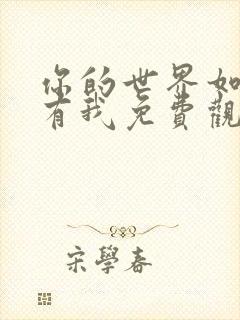 你的世界如
有我免費觀
宋學春